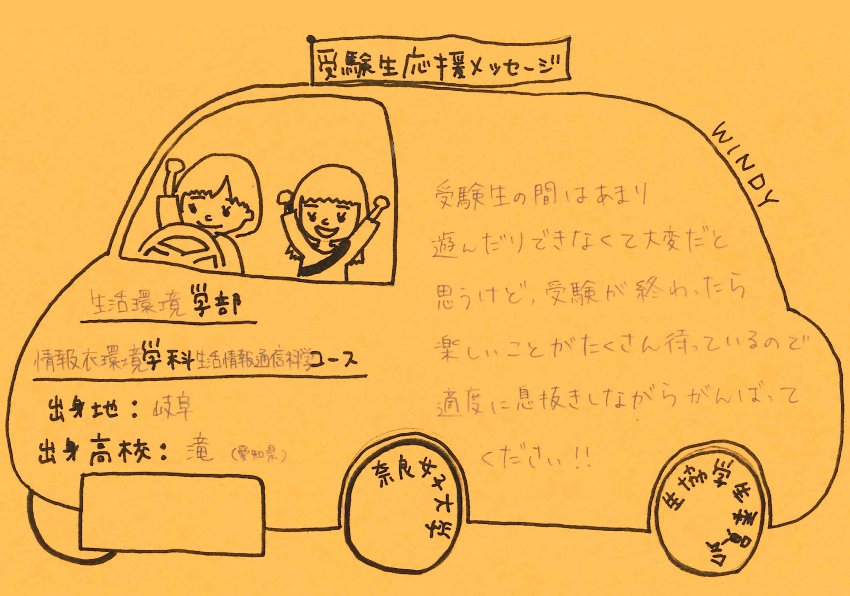 受験生応援メッセージ
WINDY
受験生の間はあまり
遊んだりできなくて大変だと
思うけど、受験が終わったら
楽しいことがたくさん待っているので
適度に息抜きしながらがんばって
ください!!
生活環境学部
情報衣環境学科生活情報通信科学コース
出身地：岐阜
出身高校：滝（愛知県）
奈良女子大学
生協学生委員会